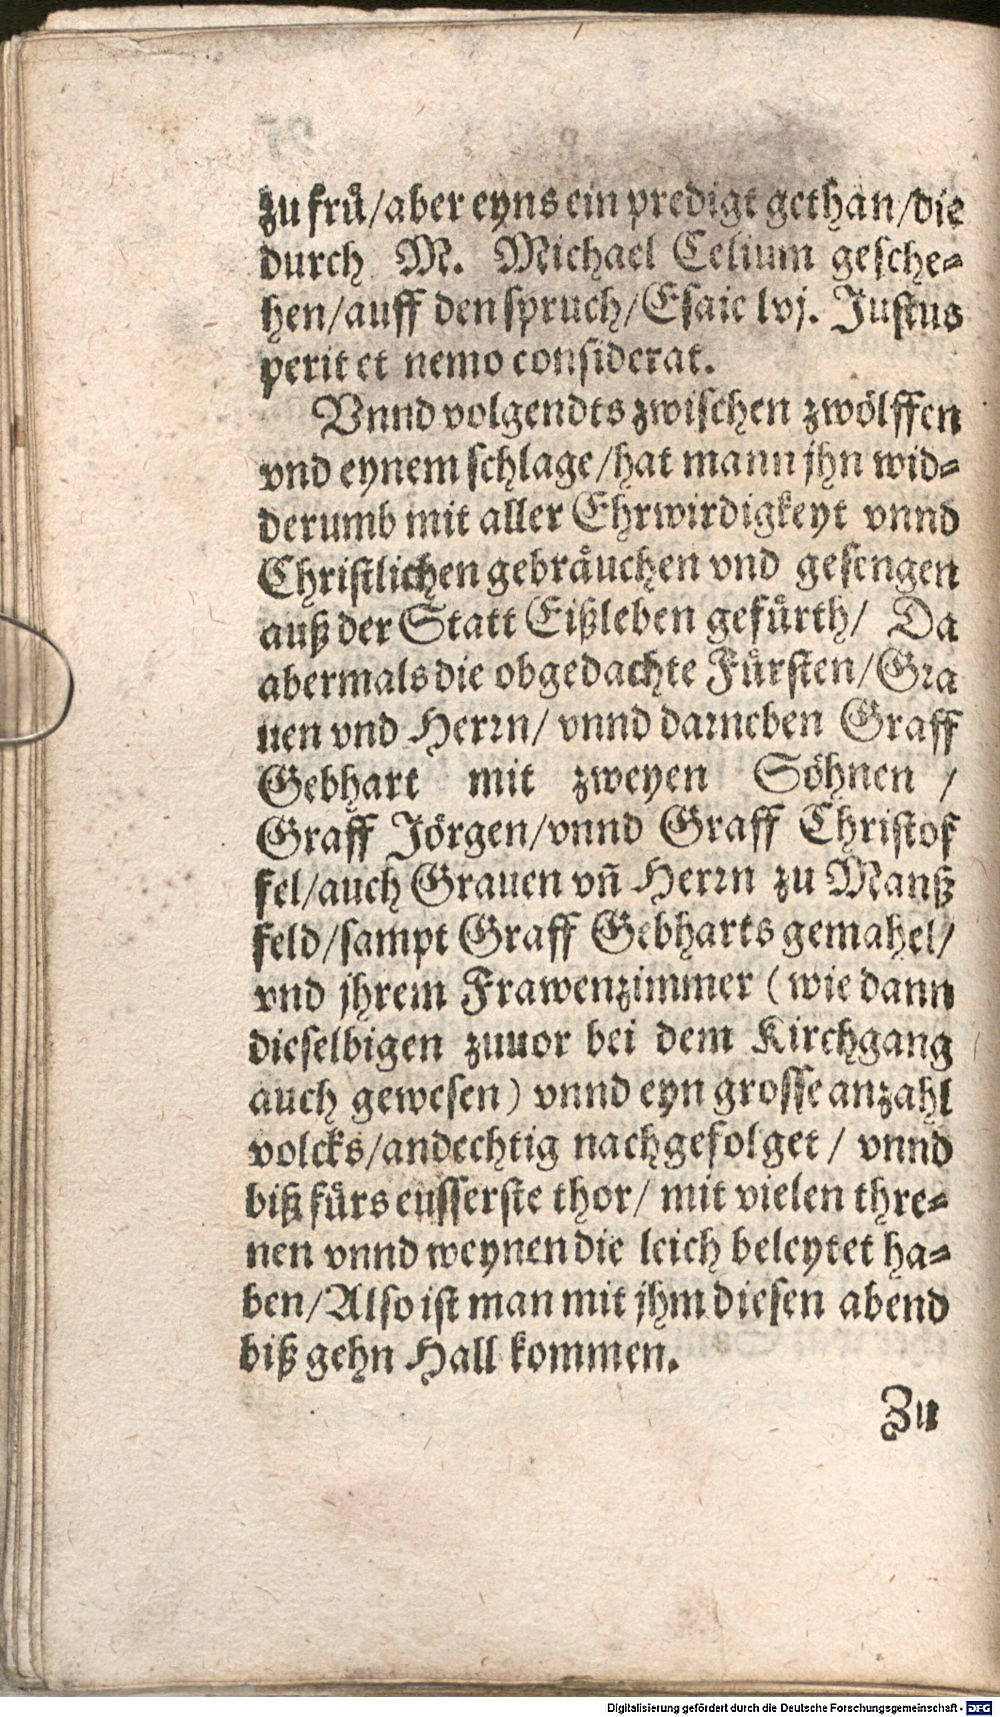 zu frů/aber eyns ein predigt gethan/die
durch M. Michael Celium gesche⸗
hen/auff den spruch/Esaie lvj. Justus
perit et nemo considerat.
Vnnd volgendts zwischen zwölffen
vnd eynem schlage/hat mann jhn wid⸗
derumb mit aller Ehrwirdigkeyt vnnd
Christlichen gebräuchen vnd gesengen
auß der Statt Eißleben gefürth/ Da
abermals die obgedachte Fürsten/Gra
uen vnd Herrn/ vnnd darneben Graff
Gebhart mit zweyen Söhnen /
Graff Jörgen/vnnd Graff Christof
fel/auch Grauen vñ Herrn zu Manß
feld/sampt Graff Gebharts gemahel/
vnd jhrem Frawenzimmer ( wie dann
dieselbigen zuuor bei dem Kirchgang
auch gewesen ) vnnd eyn grosse anzahl
volcks/andechtig nachgefolget / vnnd
biß fürs eusserste thor/ mit vielen thre⸗
nen vnnd weynen die leich beleytet ha⸗
ben/Also ist man mit jhm diesen abend
biß gehn Hall kommen.
Zu
Digitalisierung gefördert durch die Deutsche Forschungsgemeinschaft - DFG